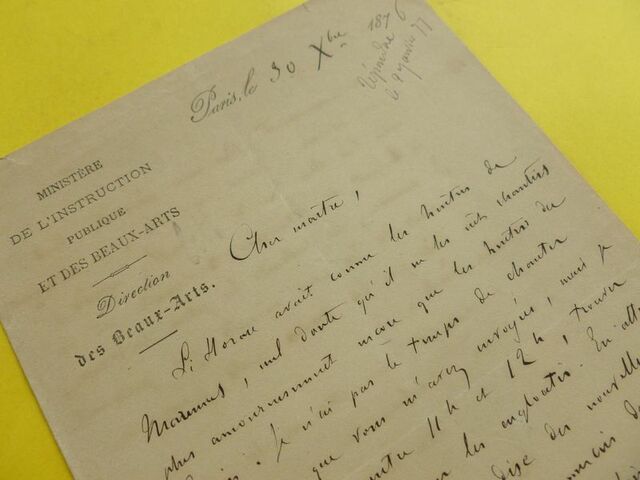 Paris, le 30 Xbre 1876
répondre
le 9 janvier 77
MINISTÈRE
DE L'INSTRUCTION
PUBLIQUE
ET DES BEAUX-ARTS
Direction
des Beaux-Arts.
Cher maître,
Si Horace avait connu les huîtres de
Marennes, nul doute qu'il ne les eût chantées
plus amoureusement encore que les huîtres du
Je n'ai pas le temps de chanter
que vous m'avez envoyées, mais je
entre 11h et 12h, trouver
les engloutir. En
des nouvelles